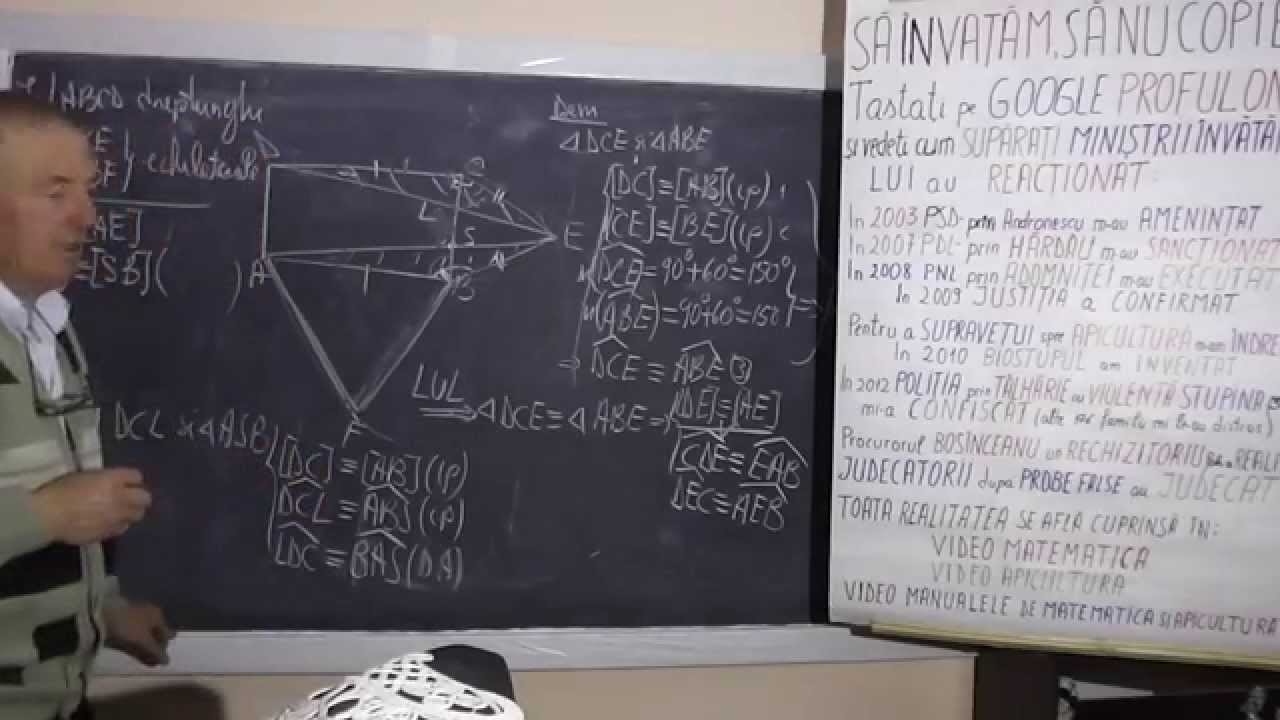 ABCD dreptunghi
echilaterale
AE]
≡[SB](        )
D
C
L
S
E
A
B
F
DCL și △ASB
[DC] ≡ [AB](ip)
DCL ≡ ABS (ip)
LDC ≡ BAS (D.A)
Dem
△DCE și △ABE
[DC] ≡ [AB](ip)
[CE] ≡ [BE](ip)
DCE = 90°+60° = 150°
(ABE) = 90°+60° = 150°
⇒ DCE ≡ ABE ③
LUL
⇒ △DCE ≡ △ABE ⇒ [DE] ≡ [AE]
CDE ≡ EAB
DEC ≡ AEB
SĂ ÎNVĂȚĂM, SĂ NU COPIE
Tastati pe GOOGLE PROFULON
și vedeti cum SUPĂRAȚI MINIȘTRII ÎNVĂȚĂ
LUI au REACȚIONAT:
In 2003 PSD- prin Andronescu m-au AMENINȚAT
In 2007 PDL- prin HÂRDĂU m-au SANCȚIONAT
In 2008 PNL prin ADOMNIȚEI m-au EXECUTAT
In 2009 JUSTIȚIA a CONFIRMAT
Pentru a SUPRAVEȚUI spre APICULTURĂ m-am ÎNDRE
In 2010 BIOSTUPUL am INVENTAT
In 2012 POLIȚIA prin TÂLHĂRIE cu VIOLENȚĂ STUPINA
mi-a CONFISCAT (alte familii mi le-au distrus)
Procurorul BOSÎNCEANU un RECHIZITORIU REALI
JUDECATORII dupa PROBE FALSE au JUDECAT
TOATA REALITATEA SE AFLĂ CUPRINSĂ ÎN:
VIDEO MATEMATICA
VIDEO APICULTURA
VIDEO MANUALELE DE MATEMATICA SI APICULTURA